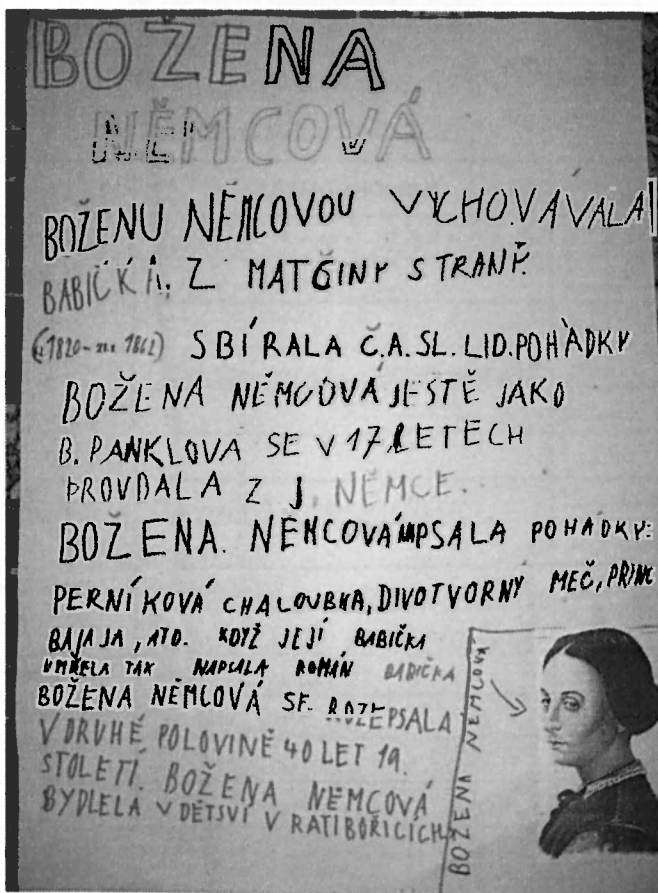 BOŽENA
NĚMCOVÁ
BOŽENU NĚMCOVOU VYCHOVÁVALA
BABIČKA. Z MATČINY STRANY.
(1820-1862) SBÍRALA Č.A.SL. LID. POHÁDKY
BOŽENA NĚMCOVÁ JEŠTĚ JAKO
B. PANKLOVA SE V 17 LETECH
PROVDALA Z J. NĚMCE.
BOŽENA. NĚMCOVÁ NAPSALA POHÁDKY:
PERNÍKOVÁ CHALOUBKA, DIVOTVORNÝ MEČ, PRINC
BAJAJA, ATD. KDYŽ JEJÍ BABIČKA
UMŘELA TAK NAPSALA ROMÁN BABIČKA
BOŽENA NĚMCOVÁ SE ROZEPSALA
V DRUHÉ POLOVINĚ 40 LET 19.
STOLETÍ. BOŽENA NĚMCOVÁ
BYDLELA V DĚTSVÍ V RATIBOŘICÍCH
BOŽENA NĚMCOVÁ